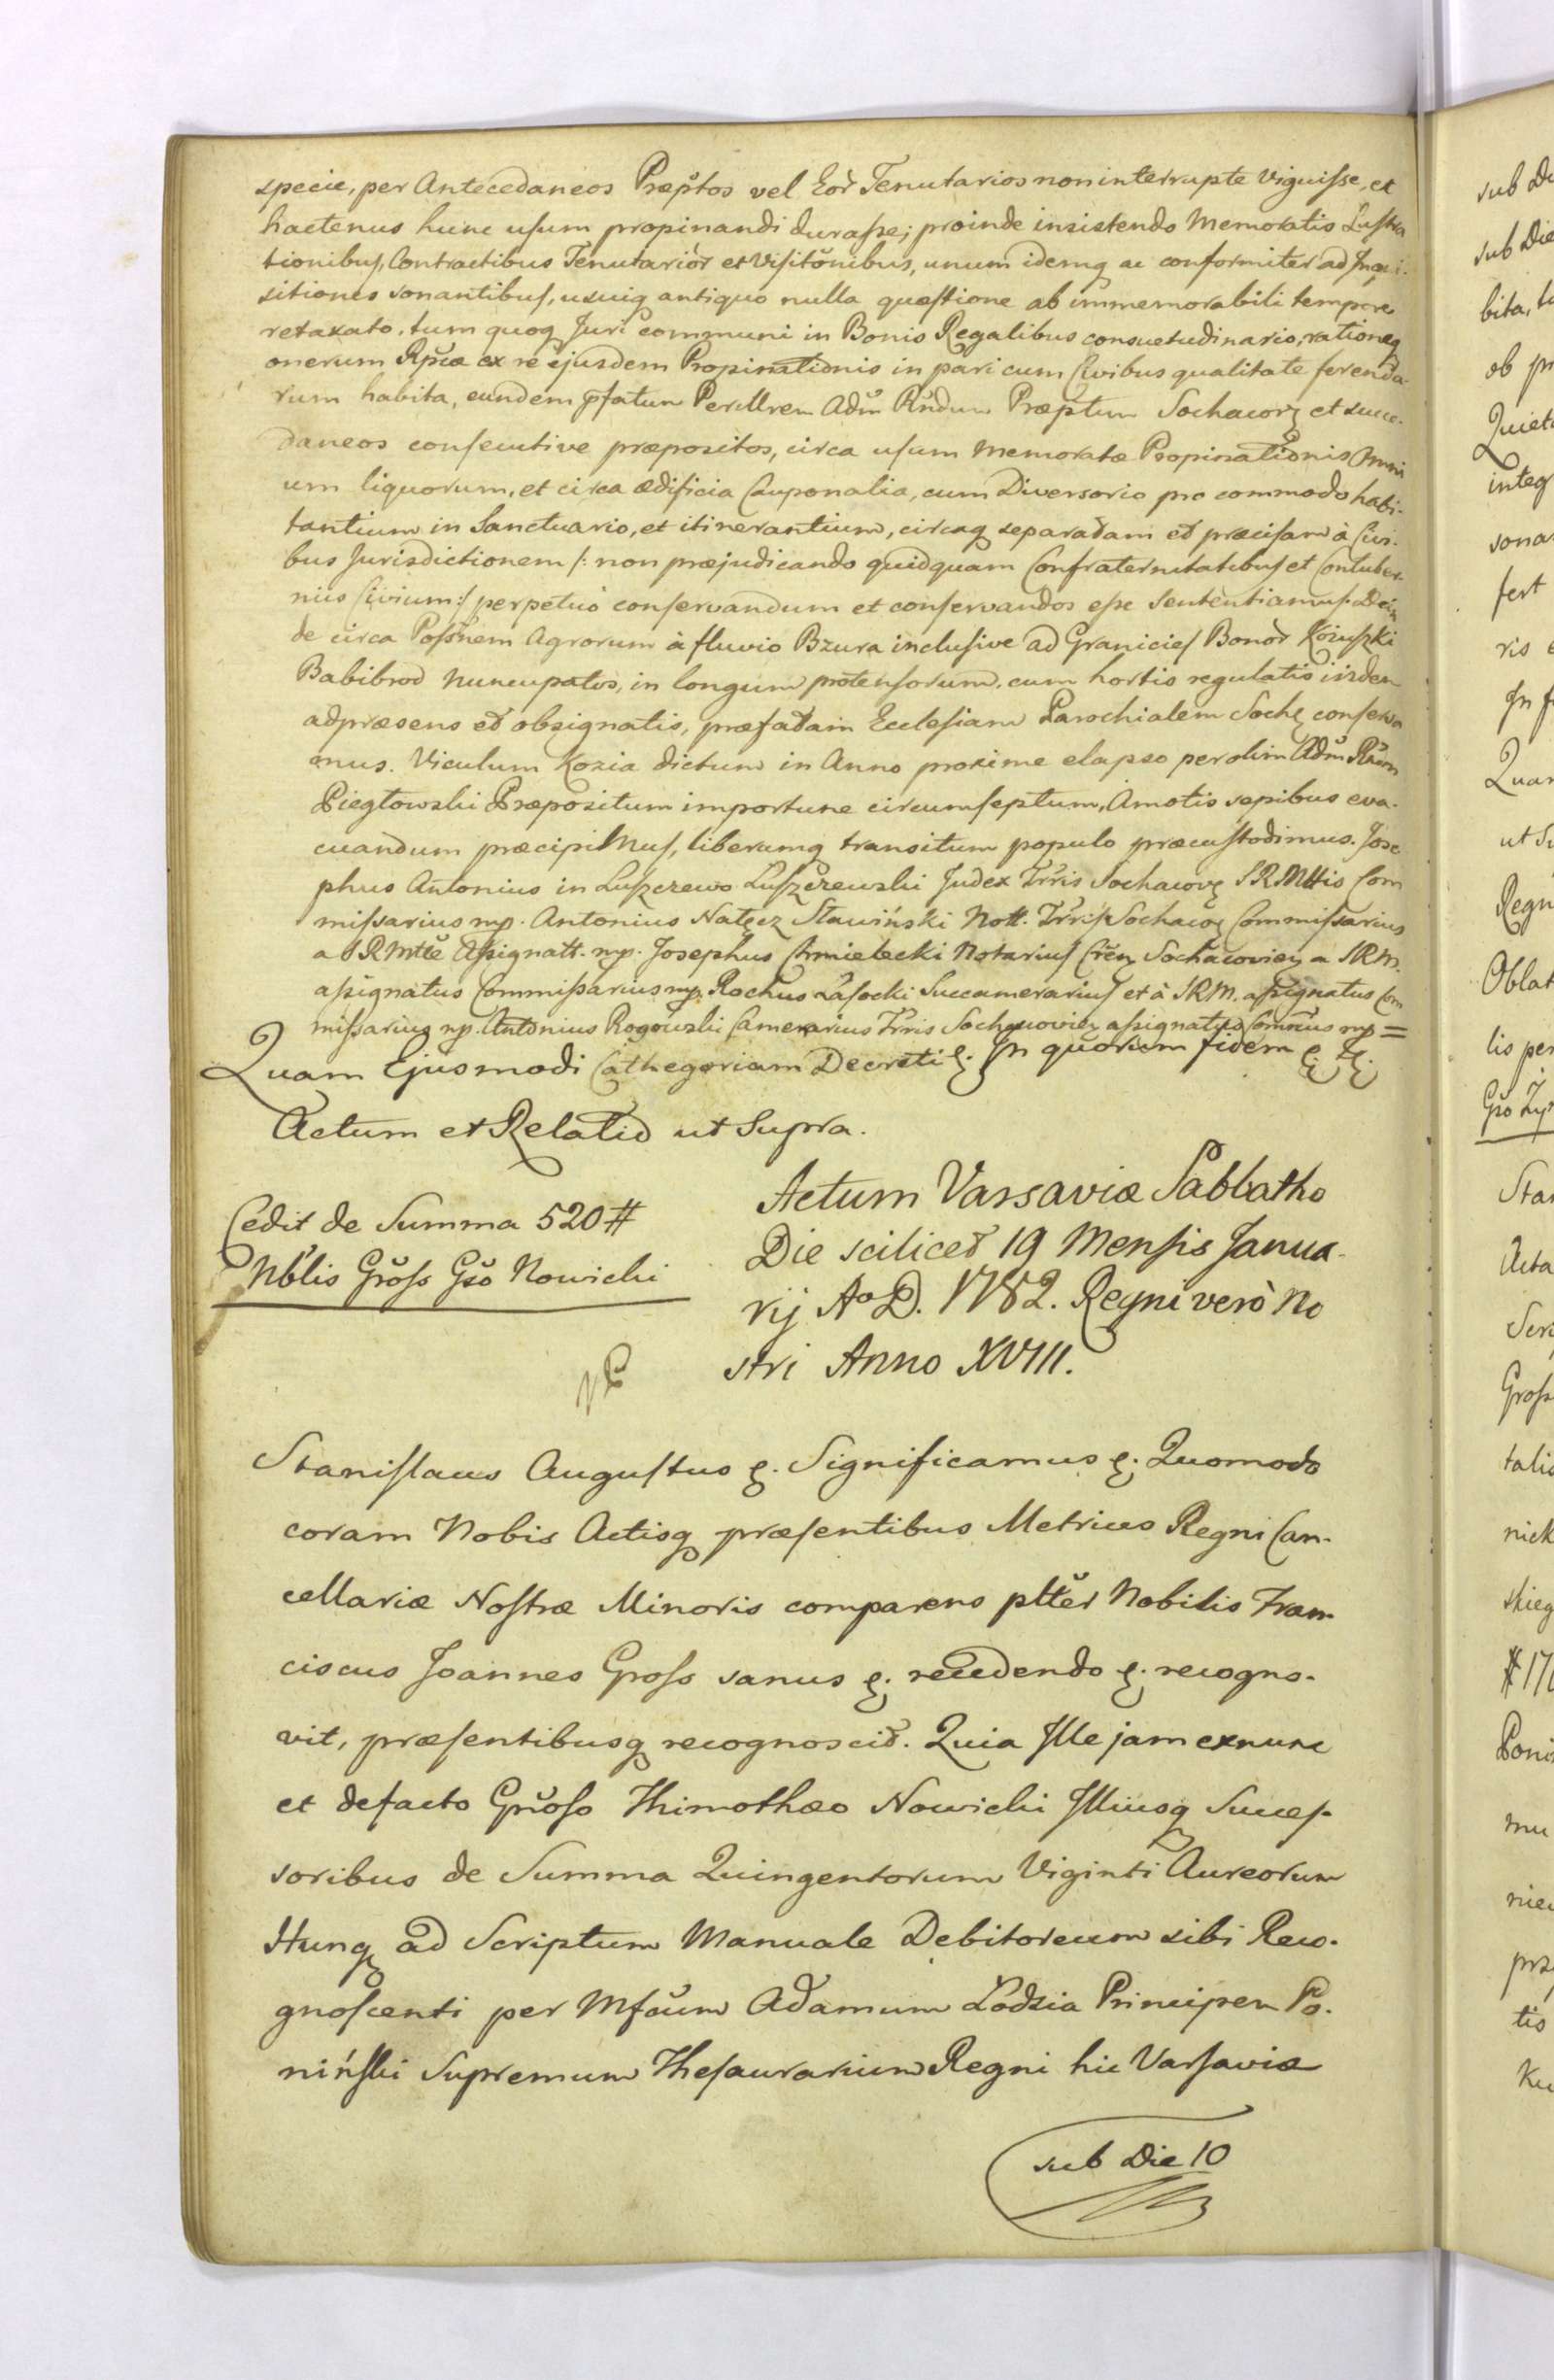 specie, per Antecedaneos Præptos vel Eor Tenutarios non interrupte viguisse, et
hactenus hunc usum propinandi durasse; proinde insistendo Memoratis Lustra
tionibus, Contractibus Tenutarior et Visitonibus, unum idemq ac conformiter ad Inqui-
sitiones sonantibus, usuiq antiquo nulla quæstione ab immemorabili tempore
retaxato, tum quoq Juri communi in Bonis Regalibus consuetudinario, rationeq
onerum Rpcæ ex re ejusdem Propinationis in pari cum Civibus qualitate ferenda-
rum habita, eundem pfatum Perillrem Adm Rndum Præptum Sochacov et succe-
daneos consecutive præpositos, circa usum memoratæ Propinationis Omni
um liquorum, et circa ædificia Cauponalia, cum Diversorio pro commodo habi-
tantium in Sanctuario, et itinerantium, circaq separatam et præcisam à Civi-
bus Jurisdictionem /: non præjudicando quidquam Confraternitatibus et Contuber-
niis Civium :/ perpetuò conservandum et conservandos esse sententiamus. Dein
de circa Possnem Agrorum à fluvio Bzura inclusive ad Granicies Bonor Kożuszki
Babibrod nuncupatos, in longum protensorum, cum hortis regulatis iisdem
adpræsens et obsignatis, præfatam Ecclesiam Parochialem Soch conserva
mus. Viculum Kozia dictum in Anno proxime elapso per olim Adm Rdum
Piegłowski Præpositum importune circumseptum, Amotis sepibus eva-
cuandum præcipimus, liberumq transitum populo præcustodimus. Jose
phus Antonius in Luszczewo Luszczewski Judex Trris Sochacov SRMttis Com
missarius mp. Antonius Nałęcz Sławiński Nott. Trris Sochacov Commissarius
a SRMtte Assignatt. mp. Josephus Chmielecki Notarius Cren Sochacovien a SRM.
assignatus Commissarius mp. Rochus Lasocki Succamerarius et à SRM. assignatus Com
missarius mp. Antonius Rogowski Camerarius Trris Sochacovien assignatus Commius mp =
Quam Ejusmodi Cathegoriam Decreti &. In quorum fidem &. &.
Actum et Relatio ut Supra.
Cedit de Summa 520 #
Nblis Gross Gso Nowicki
Actum Varsaviæ Sabbatho
Die scilicet 19 Mensis Janua-
rij Ao D. 1782. Regni verò No
stri Anno XVIII.
Stanislaus Augustus &. Significamus &. Quomodo
coram Nobis Actisq præsentibus Metrices Regni Can-
cellariæ Nostræ Minoris comparens pltter Nobilis Fran
ciscus Joannes Gross sanus &. recedendo &. recogno-
vit, præsentibusq recognoscit. Quia Ille jam exnunc
et defacto Gnroso Thimothæo Nowicki Illiusq Succes-
soribus de Summa Quingentorum Viginti Aureorum
Hung ad Scriptum Manuale Debitoreum sibi Reco-
gnoscenti per Mfcum Adamum Łodzia Principem Po-
niński Supremum Thesaurarium Regni hic Varsaviæ
sub Die 10